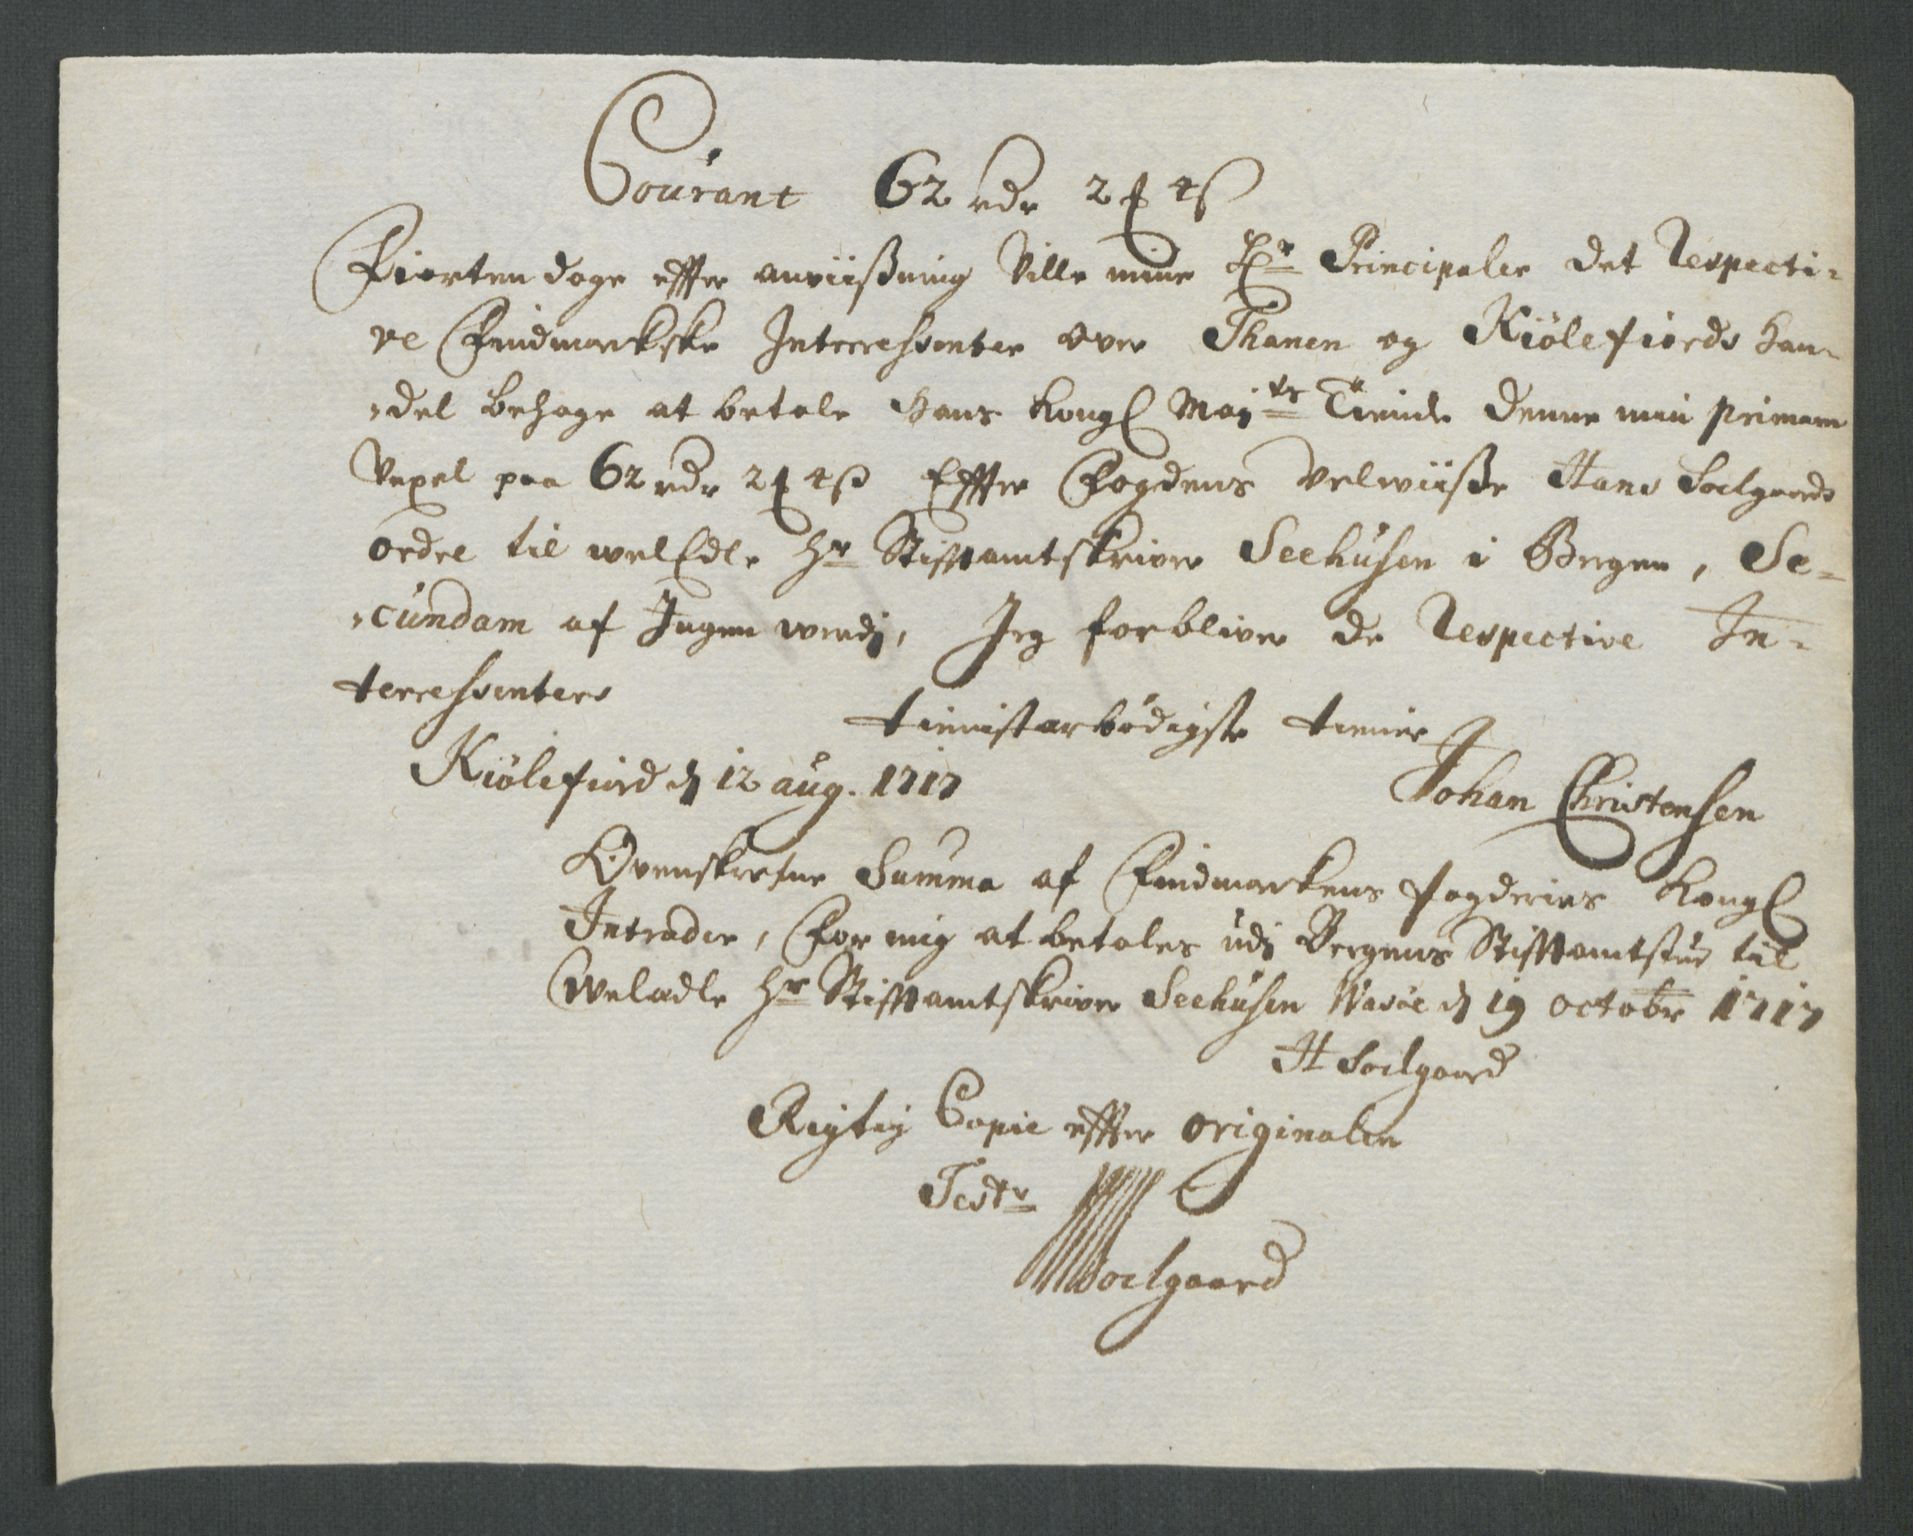 Courant 62 rdr 2 ℔ 4 ß
Fiorten dage effter anviißning Ville mine Hr Principaler det Respecti-
ve Findmarkske Interressenter over Thanen og Kiölefiords Han-
del behage at betale Hans Kongl Maj:ts Tiende denne min primam
Vexel paa 62 rdr 2 ℔ 4 ß Effter Fogdens Velwiiße Hans Soelgaards
ordre til welEdle Hr Stifftamtskriver Seehusen i Bergen, Se-
cundam af Ingen verdj, Jeg forbliver de Respective In-
terressenters
tienistarbödigste tiener
Kiölefiord d 12 aug. 1717
Johan Christensen
Ovenskrefne Summa af Findmarkens fogderies Kongl
Intrader, For mig at betales udj Bergens Stifftamtstue til
Weladle Hr Stifftamtskriver Seehusen Wasöe d 19 octobr 1717
H Soelgaard
Rigtig Copie effter originalen
Test:
HSoelgaard